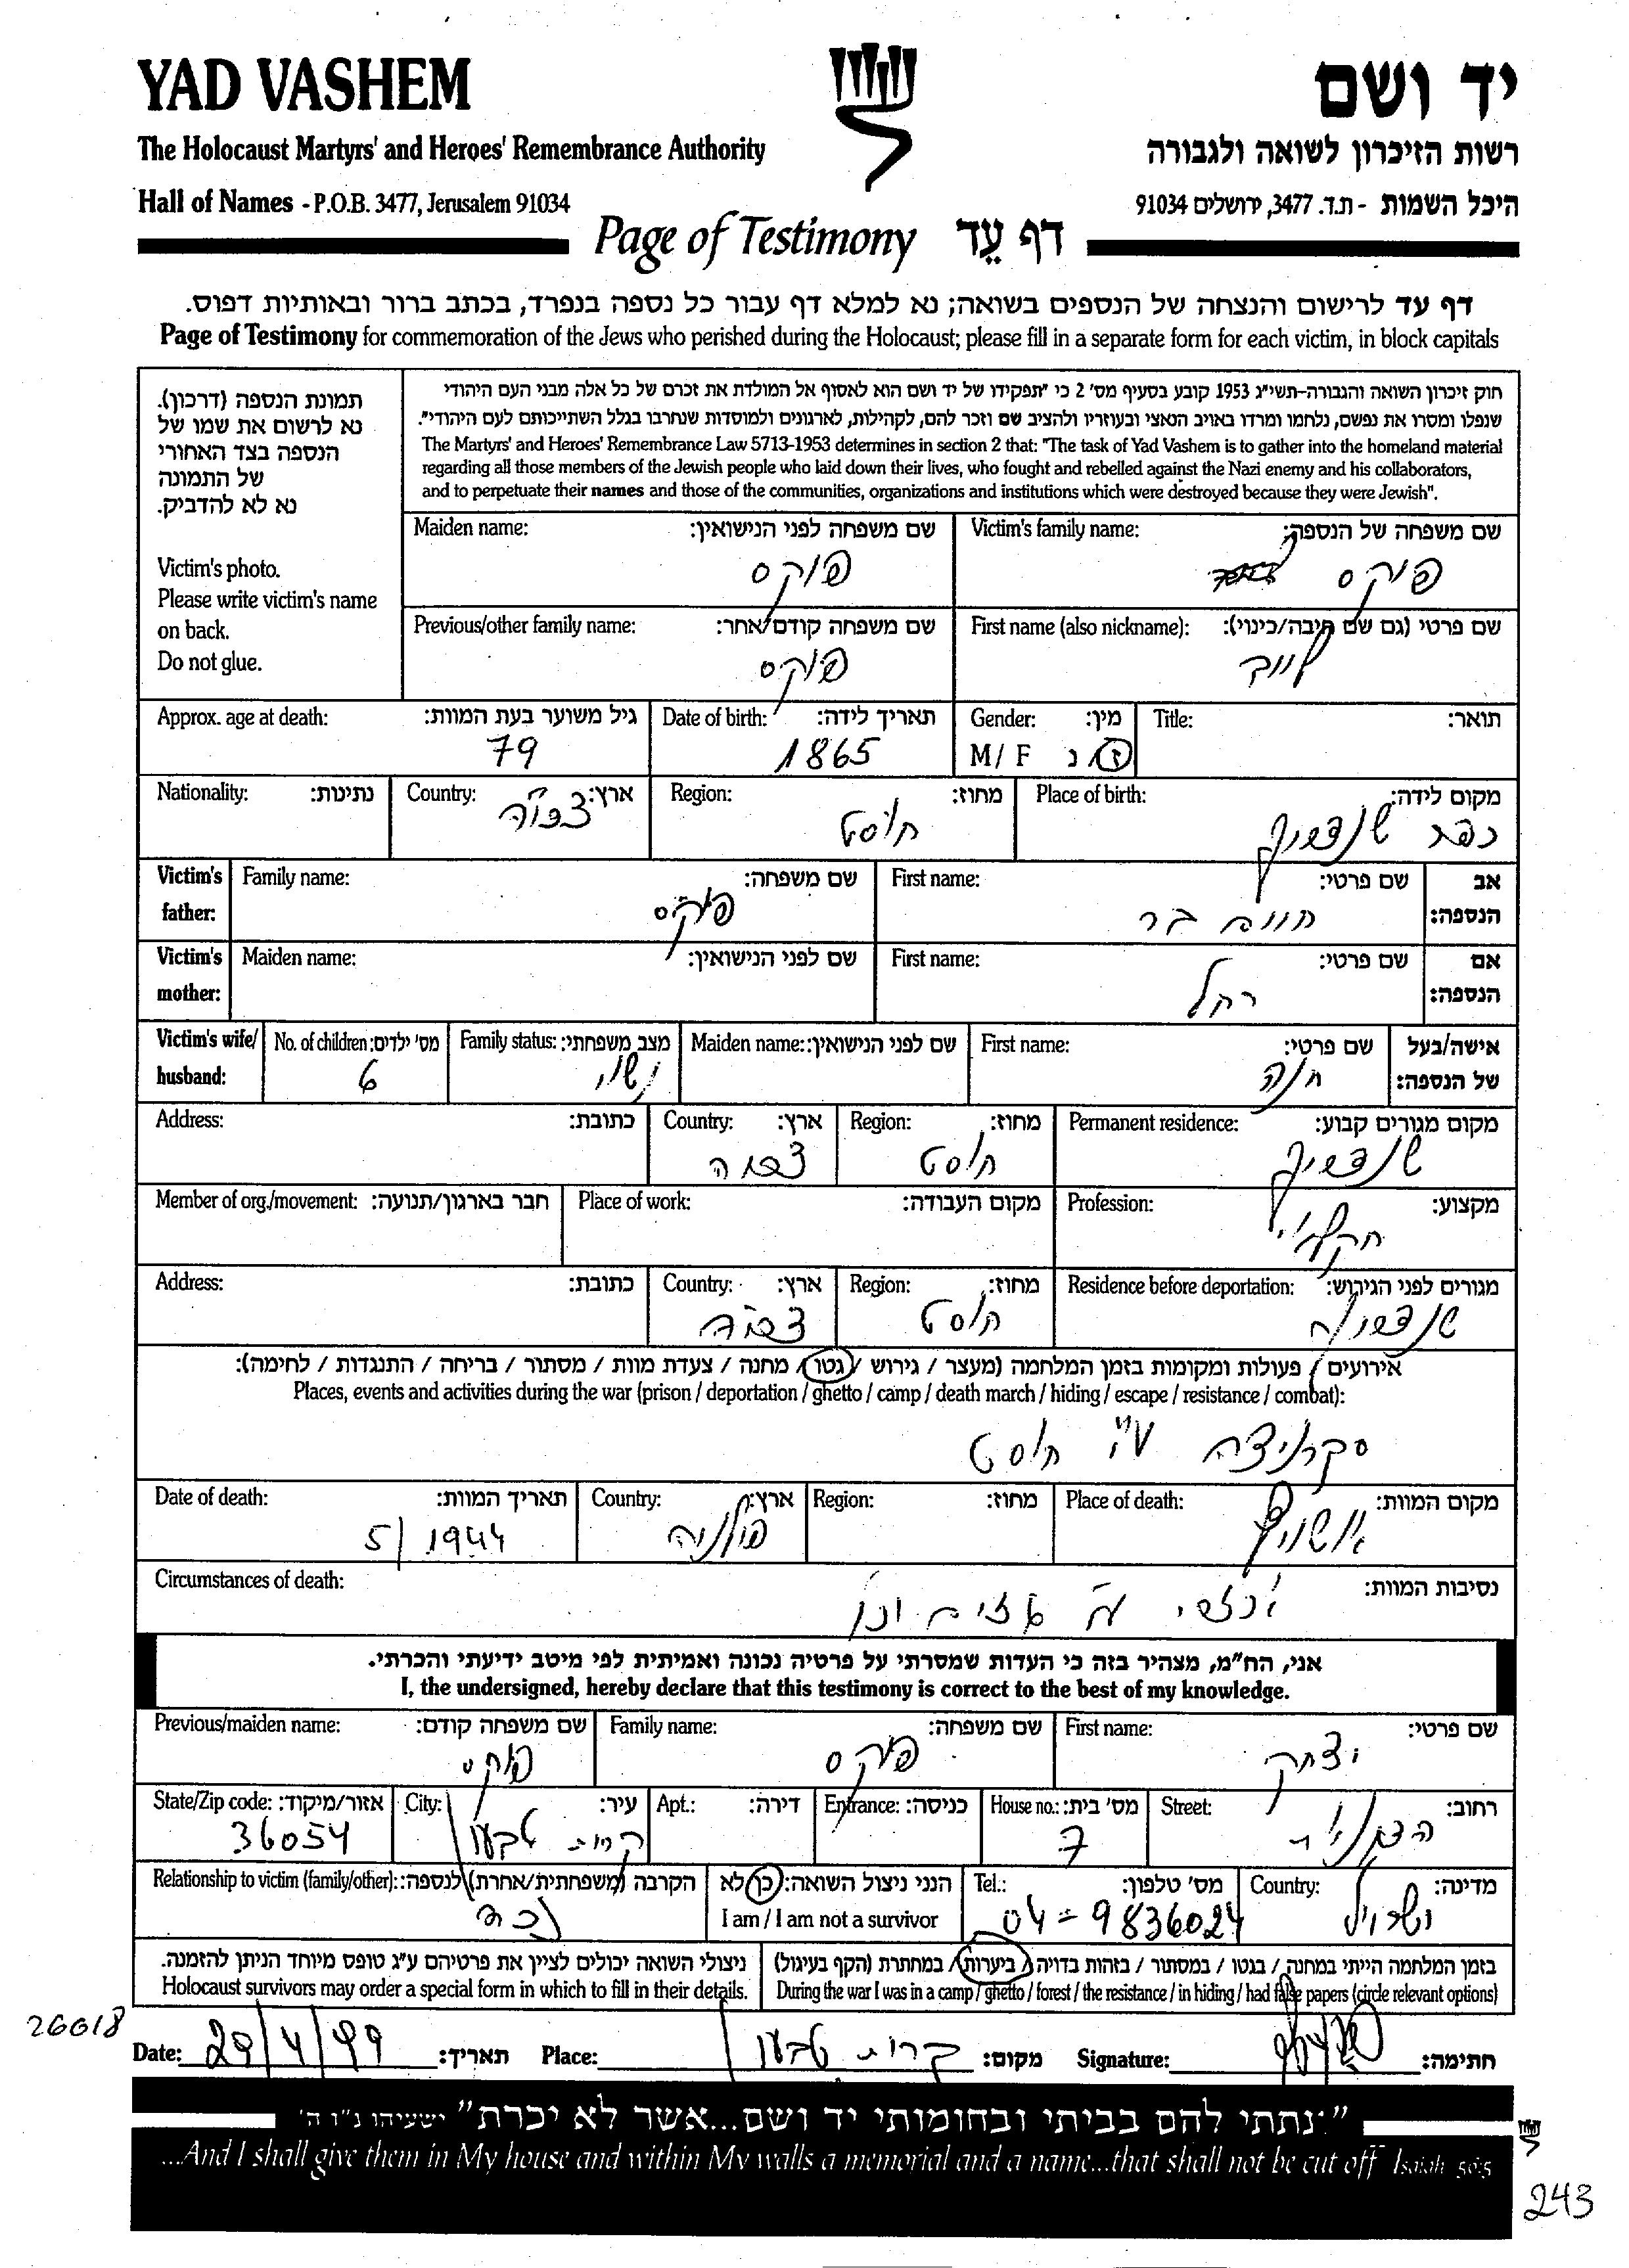 YAD VASHEM
יד ושם
The Holocaust Martyrs' and Heroes' Remembrance Authority
רשות הזיכרון לשואה ולגבורה
Hall of Names - P.O.B. 3477, Jerusalem 91034
היכל השמות - ת.ד. 3477, ירושלים 91034
Page of Testimony דף עֵד
דף עד לרישום והנצחה של הנספים בשואה; נא למלא דף עבור כל נספה בנפרד, בכתב ברור ובאותיות דפוס.
Page of Testimony for commemoration of the Jews who perished during the Holocaust; please fill in a separate form for each victim, in block capitals
תמונת הנספה (דרכון).
נא לרשום את שמו של
הנספה בצד האחורי
של התמונה
נא לא להדביק.
Victim's photo.
Please write victim's name
on back.
Do not glue.
חוק זיכרון השואה והגבורה-תשי״ג 1953 קובע בסעיף מס' 2 כי "תפקידו של יד ושם הוא לאסוף אל המולדת את זכרם של כל אלה מבני העם היהודי
שנפלו ומסרו את נפשם, נלחמו ומרדו באויב הנאצי ובעוזריו ולהציב שם וזכר להם, לקהילות, לארגונים ולמוסדות שנחרבו בגלל השתייכותם לעם היהודי".
The Martyrs' and Heroes' Remembrance Law 5713-1953 determines in section 2 that: "The task of Yad Vashem is to gather into the homeland material
regarding all those members of the Jewish people who laid down their lives, who fought and rebelled against the Nazi enemy and his collaborators,
and to perpetuate their names and those of the communities, organizations and institutions which were destroyed because they were Jewish".
Victim's family name: שם משפחה של הנספה:
פוקס
Maiden name: שם משפחה לפני הנישואין:
פוקס
First name (also nickname): שם פרטי (גם שם חיבה/כינוי):
Previous/other family name: שם משפחה קודם/אחר:
פוקס
Title: תואר:
Gender: מין:
M/ F ז/ נ
Date of birth: תאריך לידה:
1865
Approx. age at death: גיל משוער בעת המוות:
79
Place of birth: מקום לידה:
כפר
Region: מחוז:
חוסט
Country: ארץ:
צכיה
Nationality: נתינות:
Victim's father: אב הנספה:
First name: שם פרטי:
חיים בר
Family name: שם משפחה:
פוקס
Victim's mother: אם הנספה:
First name: שם פרטי:
רחל
Maiden name: שם לפני הנישואין:
Victim's wife/ husband: אישה/בעל של הנספה:
First name: שם פרטי:
חנה
Maiden name: שם לפני הנישואין:
Family status: מצב משפחתי:
נשוי
No. of children: מס' ילדים:
6
Permanent residence: מקום מגורים קבוע:
Region: מחוז:
חוסט
Country: ארץ:
צכיה
Address: כתובת:
Profession: מקצוע:
חקלאי
Place of work: מקום העבודה:
Member of org./movement: חבר בארגון/תנועה:
Residence before deportation: מגורים לפני הגירוש:
Region: מחוז:
חוסט
Country: ארץ:
צכיה
Address: כתובת:
אירועים / פעולות ומקומות בזמן המלחמה (מעצר / גירוש / גטו / מחנה / צעדת מוות / מסתור / בריחה / התנגדות / לחימה):
Places, events and activities during the war (prison / deportation / ghetto / camp / death march / hiding / escape / resistance / combat):
סקרניצה ע"י חוסט
Place of death: מקום המוות:
אושוויץ
Region: מחוז:
Country: ארץ:
פולניה
Date of death: תאריך המוות:
5/1944
Circumstances of death: נסיבות המוות:
Circumstances
אני, הח"מ, מצהיר בזה כי העדות שמסרתי על פרטיה נכונה ואמיתית לפי מיטב ידיעתי והכרתי.
I, the undersigned, hereby declare that this testimony is correct to the best of my knowledge.
First name: שם פרטי:
יצחק
Family name: שם משפחה:
פוקס
Previous/maiden name: שם משפחה קודם:
פוקס
Street: רחוב:
House no.: מס' בית:
7
Entrance: כניסה:
Apt.: דירה:
City: עיר:
קרית טבעון
State/Zip code: אזור/מיקוד:
36054
Country: מדינה:
ישראל
Tel.: מס' טלפון:
04-9836024
הנני ניצול השואה: כן/לא
I am / I am not a survivor
Relationship to victim (family/other): הקרבה (משפחתית/אחרת) לנספה:
נכד
בזמן המלחמה הייתי במחנה / בגטו / במסתור / בזהות בדויה / ביערות / במחתרת (הקף בעיגול)
During the war I was in a camp / ghetto / forest / the resistance / in hiding / had false papers (circle relevant options)
ניצולי השואה יכולים לציין את פרטיהם ע"ג טופס מיוחד הניתן להזמנה.
Holocaust survivors may order a special form in which to fill in their details.
26018
Date: 29/4/99 תאריך: Place: קרית טבעון מקום: Signature: חתימה:
"...נתתי להם בביתי ובחומותי יד ושם...אשר לא יכרת" ישעיהו נ"ו ה'
...And I shall give them in My house and within My walls a memorial and a name...that shall not be cut off Isaiah 56:5
243